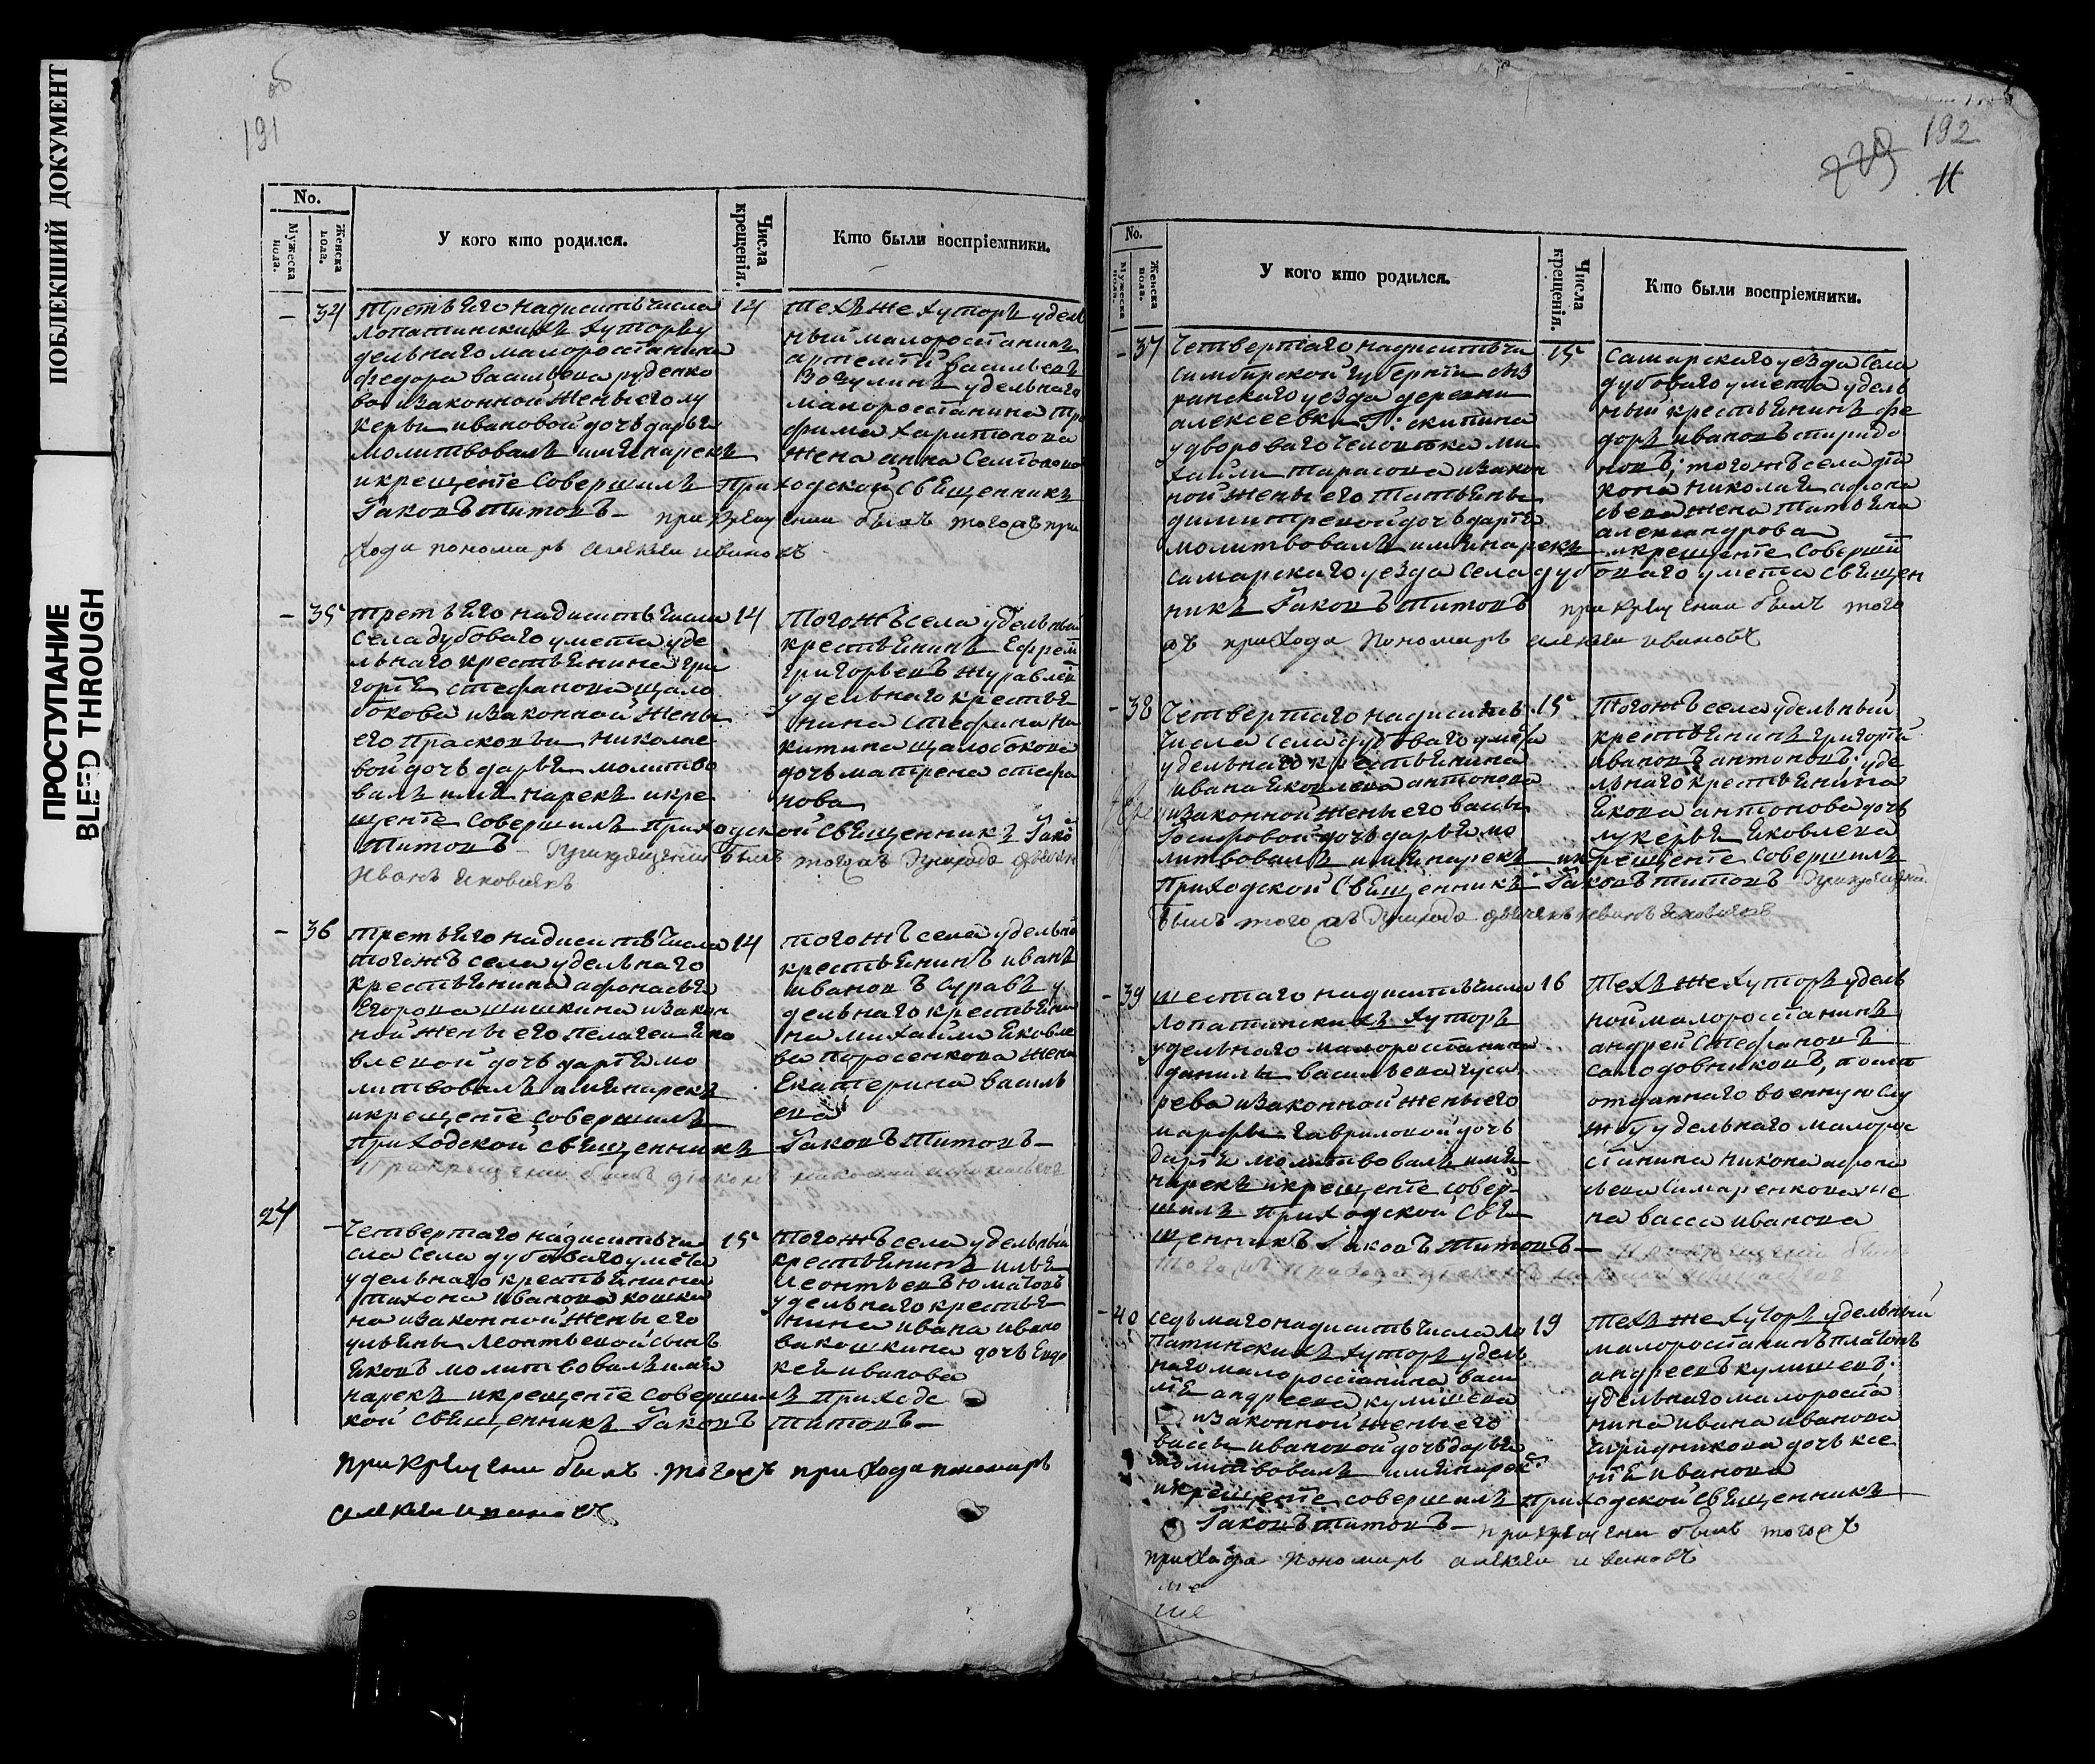 ПОБЛЕКШИЙ ДОКУМЕНТ
ПРОСТУПАНИЕ
BLEED THROUGH
об
191
No.
Мужеска пола.
Женска пола.
У кого кто родился.
Числа крещенія.
Кто были воспріемники.
– 34 третьяго надесять числа
лопатинскихъ хуторъ у
дельнаго малоросіянина
федора васильева руденко
ва изаконной жены его лу
керьи ивановой дочь дарья
молитвовалъ имя нарекъ
и крещеніе совершилъ приходской священникъ
Іаковъ титовъ – при крещении былъ тогожъ при
хода пономарь алексеи ивановъ
14 техъ же хуторъ удель
ный малоросіянинъ
васильевъ
удельнаго
малоросіянина тро
фима харитонова
жена анна Семионова
– 35 третьяго надесять числа
села дубоваго умета уде
льнаго крестьянина гри
горія стефанова щало
бокова изаконной жены
его Прасковьи николае
вой дочь дарья молитво
валъ имя нарекъ и кре
щеніе совершилъ приходской священникъ Іаковъ
титовъ – При крещении былъ тогожъ Прихода дьячекъ
Иванъ Яковлевъ
14 тогожъ села удельный
крестьянинъ Ефрем
григорьевъ журавлев
удельнаго крестья
нина стефана ни
китина щалобокова
дочь матрена стефа
нова
– 36 третьяго надесять числа
тогожъ села удельнаго
крестьянина афонасья
Егорова шишкина изакон
ной жены его пелагеи яко
влевой дочь дарія мо
литвовалъ имя нарекъ
и крещеніе совершилъ
приходской священникъ Іаковъ титовъ –
При крещении былъ диаконъ николай афонасьевъ
14 тогожъ села удельной
крестьянинъ иванъ
ивановъ суравъ у
дельнаго крестьяни
на михаила яковле
ва поросенкова жена
Екатерина василь
ева
24 – четвертаго надесять чи
сла села дубоваго умета
удельнаго крестьянина
тихона иванова кошки
на изаконной жены его
ульяны леонтьевой сынъ
яковъ молитвовалъ имя
нарекъ и крещеніе совершилъ приходс
кой священникъ Іаковъ титовъ –
при крещени былъ тогожъ прихода пономарь
алексеи ивановъ
15 тогожъ села удельный
крестьянинъ илья
леонтьевъ юматовъ
удельнаго крестья
нина ивана ивано
ва кошкина дочь Евдо
кея иванова
192
11
No.
Мужеска пола.
Женска пола.
У кого кто родился.
Числа крещенія.
Кто были воспріемники.
– 37 Четвертаго надесять чи
симбирской губерніи сыз
ранскаго уезда деревни
алексеевки скитина
у двороваго человека ми
хаила тарасова изакон
ной жены его татьяны
димитревой дочь дарія
молитвовалъ имя нарекъ и крещеніе соверши
самарскаго уезда села дубоваго умета священ
никъ Іаковъ титовъ при крещении былъ того
жъ прихода пономарь алексеи ивановъ
15 самарскаго уезда села
дубоваго умета удель
ный крестьянинъ фе
доръ ивановъ спиридо
новъ; тогожъ села дія
кона николая афона
сьева жена татьяна
александрова
– 38 Четвертаго надесять
числа села дубоваго умета
удельнаго крестьянина
ивана яковлева антонова
изаконной жены его васы
Іосифовой дочь дарья мо
литвовалъ имя нарекъ и крещеніе совершилъ
приходской священникъ Іаковъ титовъ При крещении
былъ тогожъ Прихода дьячекъ иванъ яковлевъ
15 тогожъ села удельный
крестьянинъ григорій
ивановъ антоновъ. уде
льнаго крестьянина
якова антонова дочь
лукерья яковлева
– 39 шестаго надесять числа
лопатинскихъ хуторъ
удельнаго малоросіянина
данилы васильева гуса
рева изаконной жены его
марфы гавриловой дочь
дарія молитвовалъ имя
нарекъ и крещеніе совер
шилъ приходской свя
щенникъ Іаковъ титовъ – При крещении былъ
тогожъ прихода диаконъ николай афонасьевъ
16 техъ же хуторъ удель
ной малоросіянинъ
андрей стефановъ
самодовниковъ,
отданнаго военную слу
жбу удельнаго малорос
сіянина никона афона
льева Симаренкова же
на васса иванова
– 40 седьмаго надесять числа ло
патинскихъ хуторъ удель
наго малоросіянина васи
лія андреева кулишева
изаконной жены его
васы ивановой дочь дарья
молитвовалъ имя нарекъ
и крещеніе совершилъ приходской священникъ
Іаковъ титовъ – при крещени былъ тогожъ
прихода пономарь алексеи ивановъ
19 техъ же хуторъ удельный
малоросіянинъ платонъ
андреевъ кулишевъ.
удельнаго малоросія
нина ивана иванова
дочь ксе
нія иванова